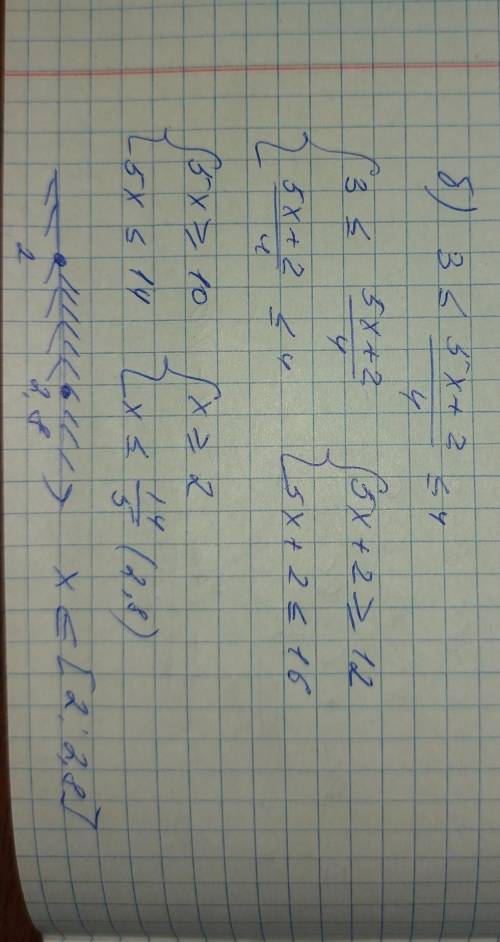 б) 3 ≤ (5x+2)/4 ≤ 4
{ 3 ≤ (5x+2)/4 { 5x+2 ≥ 12
{ (5x+2)/4 ≤ 4 { 5x+2 ≤ 16
{ 5x ≥ 10 { x ≥ 2
{ 5x ≤ 14 { x ≤ 14/5 (2,8)
2 2,8 x ∈ [2; 2,8]